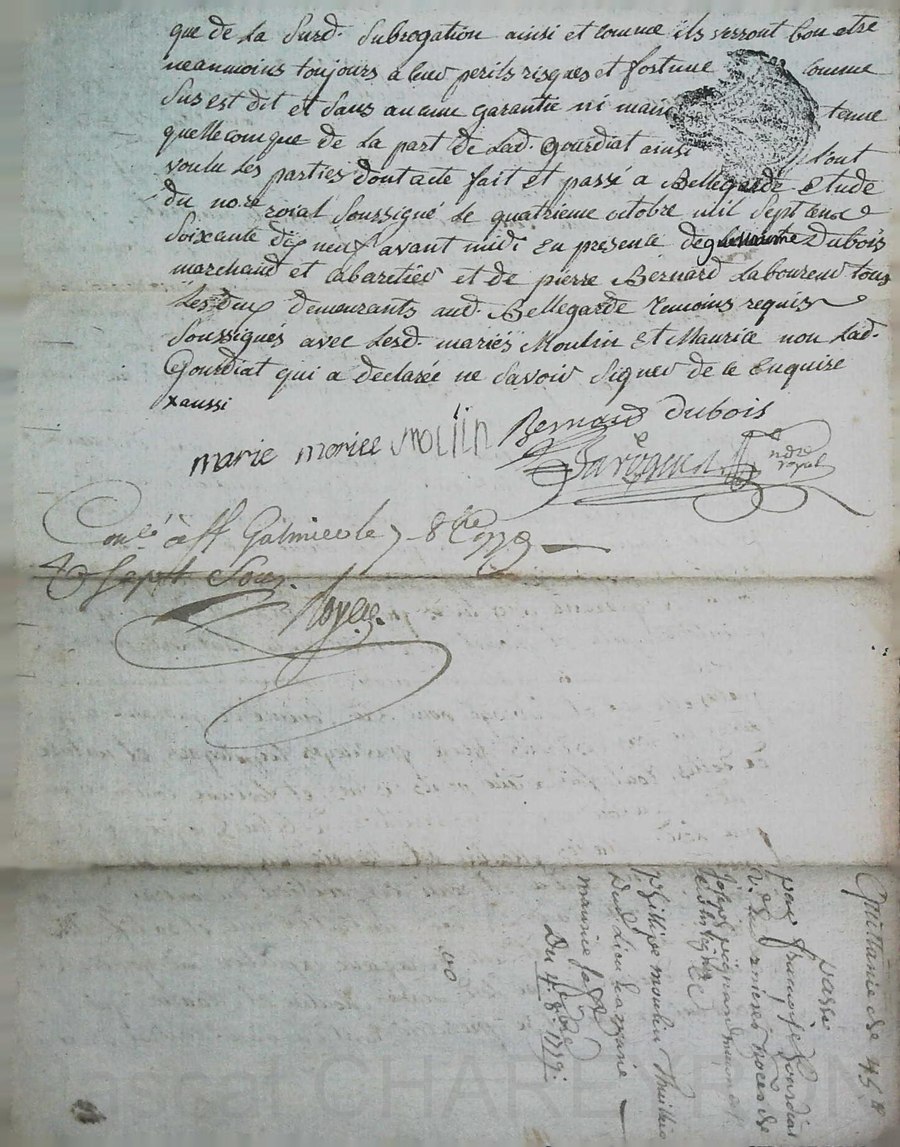 que de la Surd. Subrogation ainsi et comme ils verront bon etre
neanmoins toujours a leur perils risques et fortune comme
Sus est dit et Sans aucune garantie ni main tenue
quelleconque de la part de Lad. Gourdiat ainsi l'ont
voulu les parties dont acte fait et passé a Bellegarde Etude
du no.re roial Soussigné Le quatrieme octobre mil Sept cent
Soixante dix neuf avant midi En presence de Dubois
marchand et cabaretier et de pierre Bernard Laboureur tous
Les deux demeurants aud. Bellegarde Temoins requis
Soussignés avec Lesd. mariës Moulin Et Maurice non Lad.
Gourdiat qui a declaree ne Savoir Signer de ce Enquise
x aussi
Bernard Dubois
marie moriee moliin
no.re royal
Con.lé à St Galmier le 7 8bre 1779
R. Sept Sous.
Quittance de 45.#
passé
par françoise Gourdiat
V.e de dernieres noces de
joseph
phillipe moulin
Dud. Lieu
maurice sa
Du 4. 8.bre 1779.
Pascal CHAREYRON